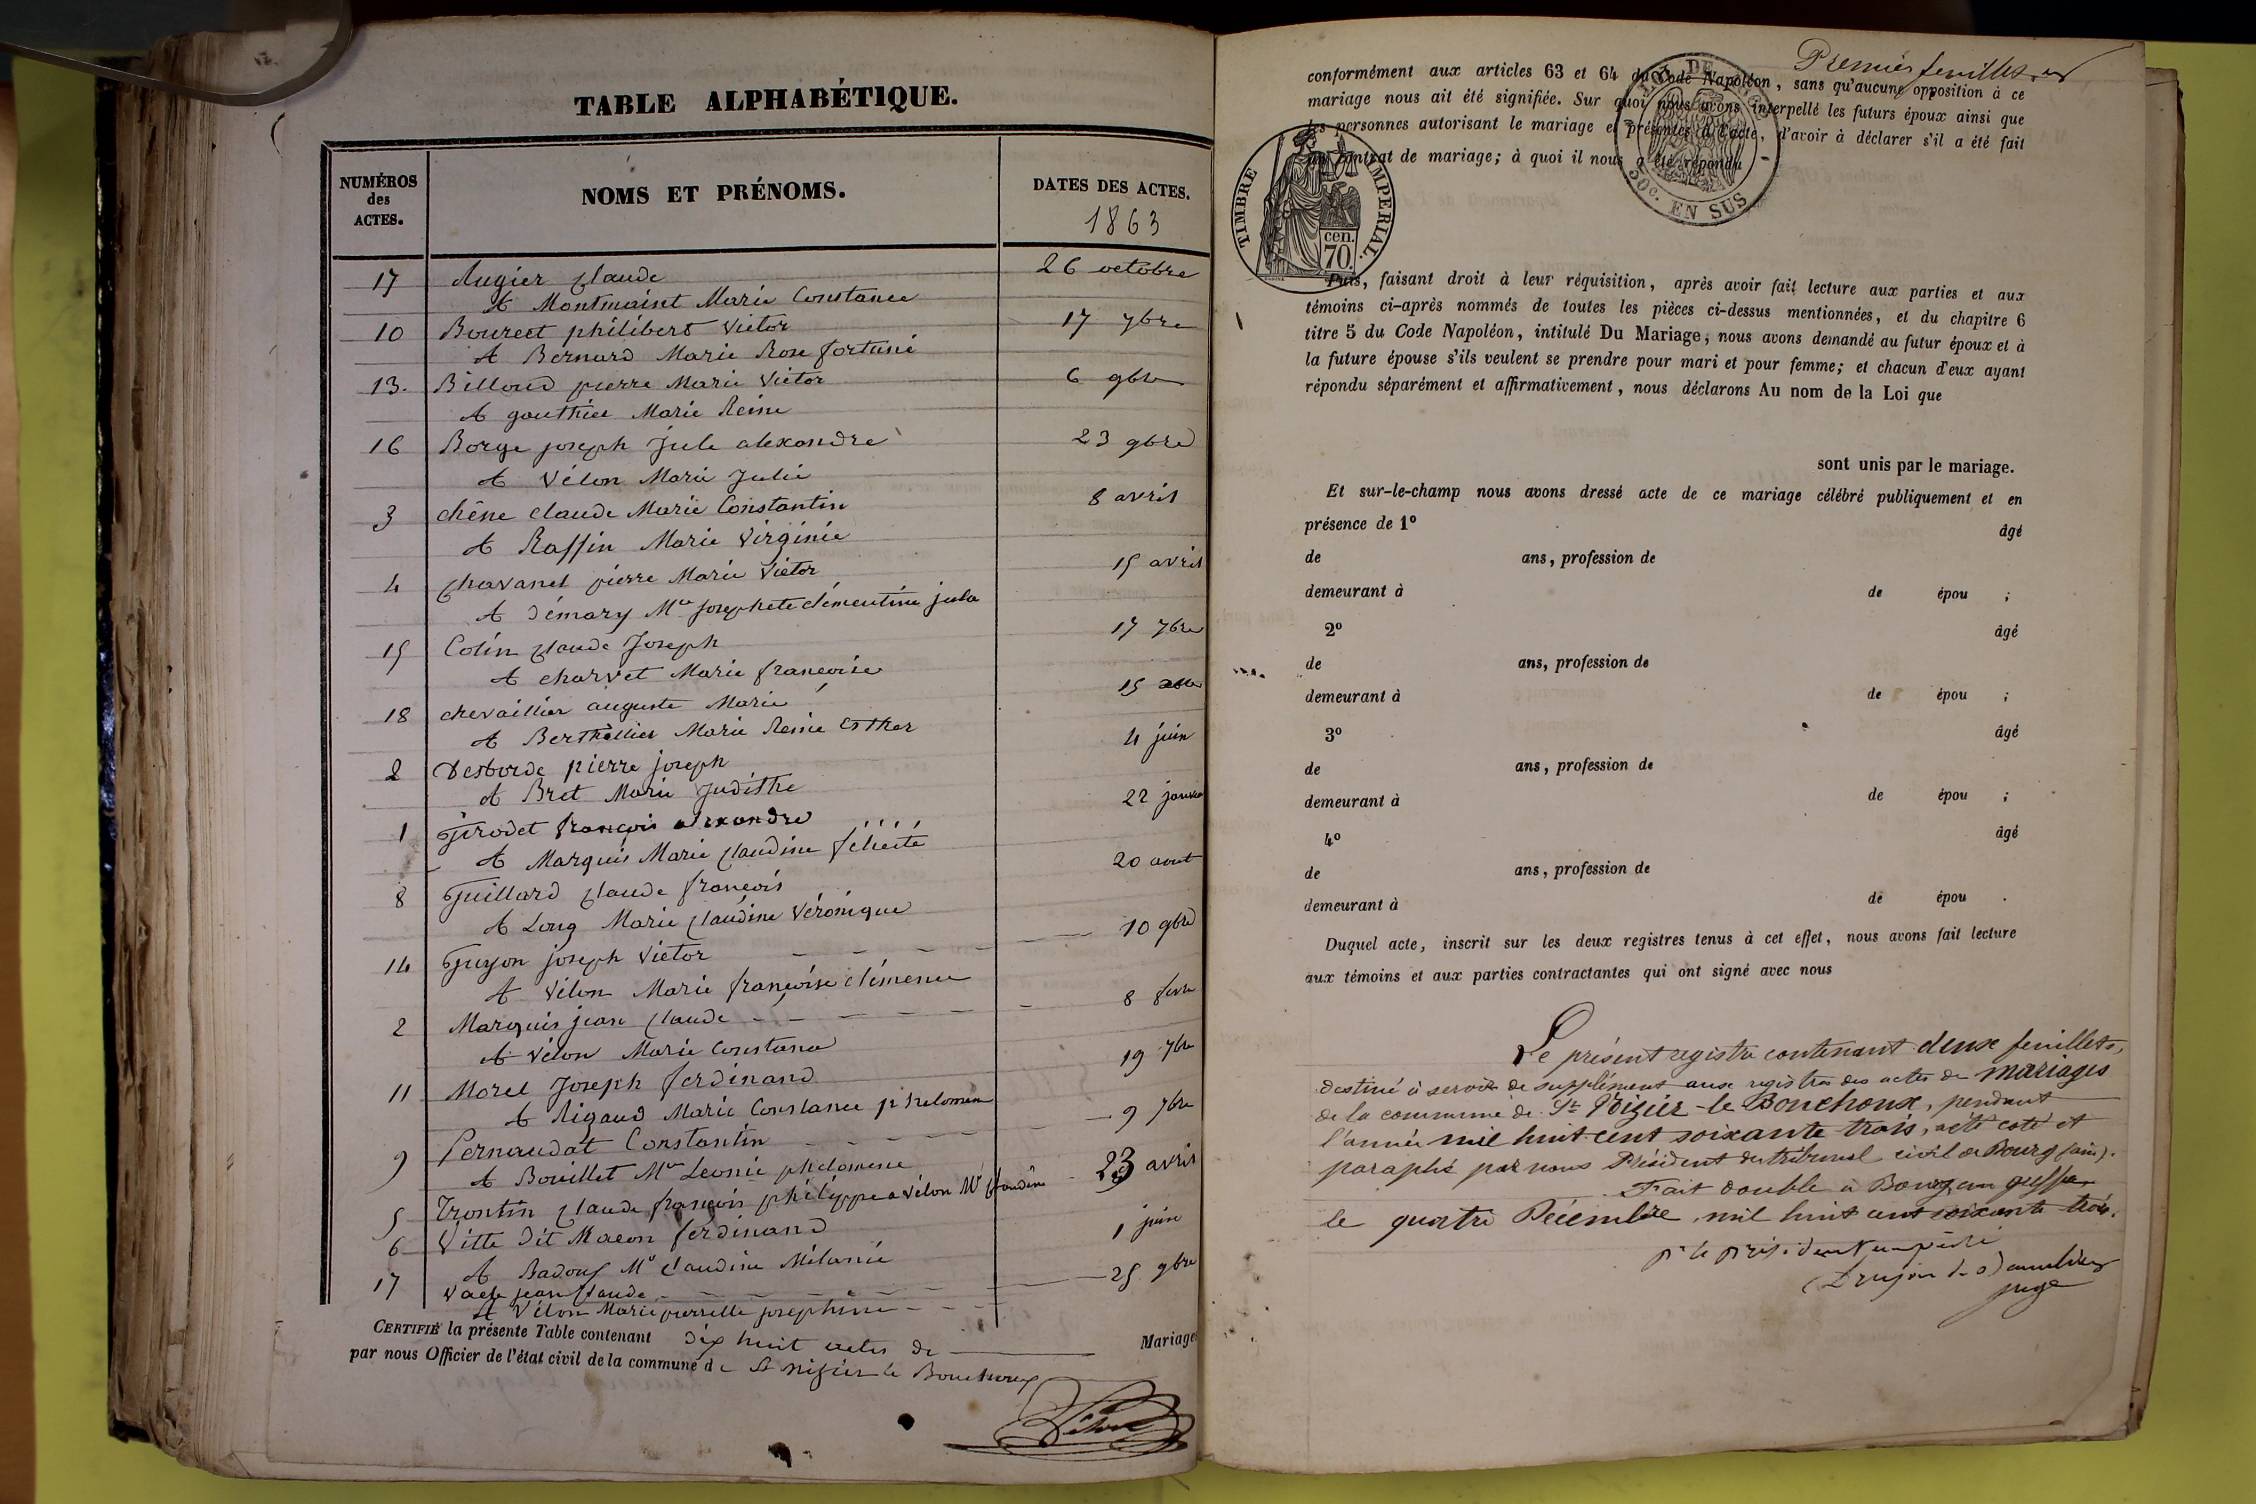 TABLE ALPHABÉTIQUE.
NUMÉROS
des
ACTES.
NOMS ET PRÉNOMS.
DATES DES ACTES.
1863
17 Augier Claude 26 octobre
A Montmaint Marie Constance
10 Bourcet philibert Victor 17 7bre
A Bernard Marie Rose fortuné
13. Billoud pierre Marie Victor 6 9bre
A gauthier Marie Reine
16 Borge joseph Jule alexandre 23 9bre
A Vélon Marie Julie
3 chêne claude Marie Constantin 8 avril
A Raffin Marie Virginie
4 Chavanel pierre Marie Victor 15 avril
A démary Mie josephete clémentine julie
15 Colin Claude Joseph 17 9bre
A charvet Marie francoise
18 chevaillier auguste Marie 15
A Berthellier Marie Reine Esther
2 Desborde pierre joseph 4 juin
A Bret Marie Judithe
1 Girodet françois alexandre 22 janvier
A Marquis Marie Claudine félicité
8 Guillard Claude francois 20 aout
A Long Marie Claudine Véronique
14 Guyon joseph Victor 10 9bre
A Vélon Marie françoise clémence
2 Marquis jean Claude 8 fevre
A Vélon Marie Constance
11 Morel Joseph ferdinand 19 7bre
A Rigaud Marie Constance philomene
9 Pernaudat Constantin 9 7bre
A Bouillet Mie Leonie philomene
5 Trontin Claude françois philippe a Vélon Me Claudine 23 avril
6 Vitte dit Macon ferdinand 1 juin
A Badoux Me claudine Mélanie
17 jean Claude 25 9bre
A Vélon Marie pierrette josephine
CERTIFIÉ la présente Table contenant dix huit actes de Mariage
par nous Officier de l'état civil de la commune de St nizier le Bouchoux
Premier feuillet
conformément aux articles 63 et 64 du Code Napoléon, sans qu'aucune opposition à ce
mariage nous ait été signifiée. Sur quoi nous avons interpellé les futurs époux ainsi que
les personnes autorisant le mariage et présentes à l'acte, d'avoir à déclarer s'il a été fait
un contrat de mariage; à quoi il nous a été répondu
TIMBRE IMPERIAL.
cen.
70.
50c. EN SUS
Puis, faisant droit à leur réquisition, après avoir fait lecture aux parties et aux
témoins ci-après nommés de toutes les pièces ci-dessus mentionnées, et du chapitre 6
titre 5 du Code Napoléon, intitulé Du Mariage, nous avons demandé au futur époux et à
la future épouse s'ils veulent se prendre pour mari et pour femme; et chacun d'eux ayant
répondu séparément et affirmativement, nous déclarons Au nom de la Loi que
sont unis par le mariage.
Et sur-le-champ nous avons dressé acte de ce mariage célébré publiquement et en
présence de 1º âgé
de ans, profession de
demeurant à de épou ;
2º âgé
de ans, profession de
demeurant à de épou ;
3º âgé
de ans, profession de
demeurant à de épou ;
4º âgé
de ans, profession de
demeurant à de épou .
Duquel acte, inscrit sur les deux registres tenus à cet effet, nous avons fait lecture
aux témoins et aux parties contractantes qui ont signé avec nous
Le présent registre contenant deux feuillets,
destiné à servir de supplément aux registres des actes de mariages
de la commune de St Nizier-le-Bouchoux, pendant
l'année mil huit cent soixante trois, a été coté et
paraphé par nous Président du tribunal civil de Bourg (ain).
Fait double à Bourg, au greffe
le quatre Décembre, mil huit cent soixante trois.
pr le président empêché
juge